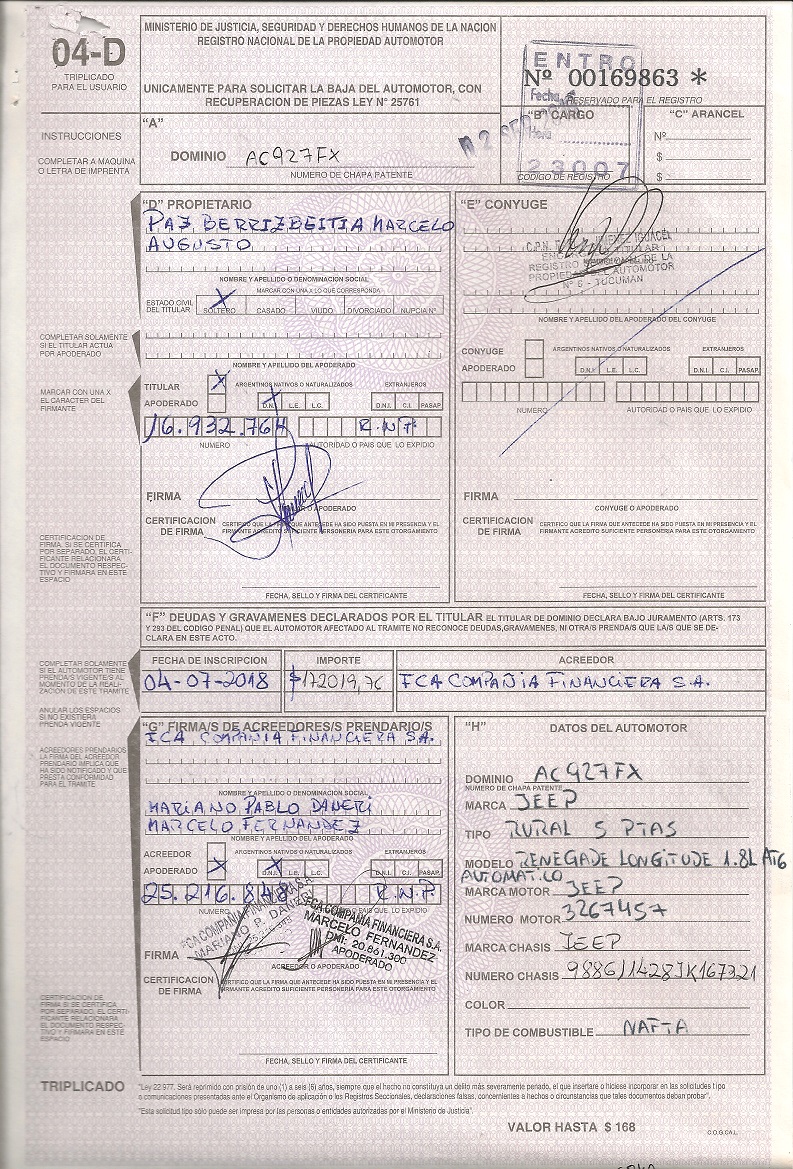 04-D
TRIPLICADO
PARA EL USUARIO
MINISTERIO DE JUSTICIA, SEGURIDAD Y DERECHOS HUMANOS DE LA NACION
REGISTRO NACIONAL DE LA PROPIEDAD AUTOMOTOR
UNICAMENTE PARA SOLICITAR LA BAJA DEL AUTOMOTOR, CON
RECUPERACION DE PIEZAS LEY N° 25761
ENTRO
Nº 00169863 *
Fecha
RESERVADO PARA EL REGISTRO
Hora
23007
"B" CARGO
CODIGO DE REGISTRO
"C" ARANCEL
Nº
$
$
INSTRUCCIONES
COMPLETAR A MAQUINA
O LETRA DE IMPRENTA
"A"
DOMINIO AC927FX
NUMERO DE CHAPA PATENTE
"D" PROPIETARIO
PAZ BERRIZBEITIA MARCELO
AUGUSTO
NOMBRE Y APELLIDO O DENOMINACION SOCIAL
MARCAR CON UNA X LO QUE CORRESPONDA
ESTADO CIVIL
DEL TITULAR
X
SOLTERO CASADO VIUDO DIVORCIADO NUPCIA Nº
COMPLETAR SOLAMENTE
SI EL TITULAR ACTUA
POR APODERADO
NOMBRE Y APELLIDO DEL APODERADO
MARCAR CON UNA X
EL CARACTER DEL
FIRMANTE
TITULAR X
APODERADO
ARGENTINOS NATIVOS O NATURALIZADOS
X
D.N.I. L.E. L.C.
EXTRANJEROS
D.N.I. C.I. PASAP.
16.932.764 R.N.P.
NUMERO AUTORIDAD O PAIS QUE LO EXPIDIO
FIRMA
O APODERADO
CERTIFICACION
DE FIRMA
CERTIFICO QUE LA FIRMA QUE ANTECEDE HA SIDO PUESTA EN MI PRESENCIA Y EL
FIRMANTE ACREDITO SUFICIENTE PERSONERIA PARA ESTE OTORGAMIENTO
CERTIFICACION DE
FIRMA. SI SE CERTIFICA
POR SEPARADO, EL CERTI-
FICANTE RELACIONARA
EL DOCUMENTO RESPEC-
TIVO Y FIRMARA EN ESTE
ESPACIO
FECHA, SELLO Y FIRMA DEL CERTIFICANTE
"E" CONYUGE
C.P.N.
REGISTRO DE LA
PROPIEDAD DEL AUTOMOTOR
N° 6 - TUCUMAN
NOMBRE Y APELLIDO DEL APODERADO DEL CONYUGE
CONYUGE
APODERADO
ARGENTINOS NATIVOS O NATURALIZADOS
D.N.I. L.E. L.C.
EXTRANJEROS
D.N.I. C.I. PASAP.
NUMERO AUTORIDAD O PAIS QUE LO EXPIDIO
FIRMA
CONYUGE O APODERADO
CERTIFICACION
DE FIRMA
CERTIFICO QUE LA FIRMA QUE ANTECEDE HA SIDO PUESTA EN MI PRESENCIA Y EL
FIRMANTE ACREDITO SUFICIENTE PERSONERIA PARA ESTE OTORGAMIENTO
FECHA, SELLO Y FIRMA DEL CERTIFICANTE
"F" DEUDAS Y GRAVAMENES DECLARADOS POR EL TITULAR EL TITULAR DE DOMINIO DECLARA BAJO JURAMENTO (ARTS. 173
Y 293 DEL CODIGO PENAL) QUE EL AUTOMOTOR AFECTADO AL TRAMITE NO RECONOCE DEUDAS,GRAVAMENES, NI OTRA/S PRENDA/S QUE LA/S QUE SE DE-
CLARA EN ESTE ACTO.
COMPLETAR SOLAMENTE
SI EL AUTOMOTOR TIENE
PRENDA/S VIGENTE/S AL
MOMENTO DE LA REALI-
ZACION DE ESTE TRAMITE
ANULAR LOS ESPACIOS
SI NO EXISTIERA
PRENDA VIGENTE
FECHA DE INSCRIPCION IMPORTE ACREEDOR
04-07-2018 $172019,76 FCA COMPAÑIA FINANCIERA S.A.
ACREEDORES PRENDARIOS
LA FIRMA DEL ACREEDOR
PRENDARIO IMPLICA QUE
HA SIDO NOTIFICADO Y QUE
PRESTA CONFORMIDAD
PARA EL TRAMITE
"G" FIRMA/S DE ACREEDORES/S PRENDARIO/S
FCA COMPAÑIA FINANCIERA S.A.
NOMBRE Y APELLIDO O DENOMINACION SOCIAL
MARIANO PABLO DANERI
MARCELO FERNANDEZ
NOMBRE Y APELLIDO DEL APODERADO
ACREEDOR
APODERADO X
ARGENTINOS NATIVOS O NATURALIZADOS
X
D.N.I. L.E. L.C.
EXTRANJEROS
D.N.I. C.I. PASAP.
25.216.848 R.N.P.
NUMERO QUE LO EXPIDIO
FCA COMPAÑIA FINANCIERA S.A.
MARIANO P. DANERI
FCA COMPAÑIA FINANCIERA S.A.
MARCELO FERNANDEZ
DNI: 20.861.300
APODERADO
FIRMA
ACREEDOR O APODERADO
CERTIFICACION
DE FIRMA
CERTIFICO QUE LA FIRMA QUE ANTECEDE HA SIDO PUESTA EN MI PRESENCIA Y EL
FIRMANTE ACREDITO SUFICIENTE PERSONERIA PARA ESTE OTORGAMIENTO
CERTIFICACION DE
FIRMA SI SE CERTIFICA
POR SEPARADO, EL CERTI-
FICANTE RELACIONARA
EL DOCUMENTO RESPEC-
TIVO Y FIRMARA EN ESTE
ESPACIO
FECHA, SELLO Y FIRMA DEL CERTIFICANTE
"H" DATOS DEL AUTOMOTOR
DOMINIO AC927FX
NUMERO DE CHAPA PATENTE
MARCA JEEP
TIPO RURAL 5 PTAS
MODELO RENEGADE LONGITUDE 1.8L AT6
AUTOMATICO
MARCA MOTOR JEEP
NUMERO MOTOR 3267457
MARCA CHASIS JEEP
NUMERO CHASIS 988611428JK167321
COLOR
TIPO DE COMBUSTIBLE NAFTA
TRIPLICADO
"Ley 22 977. Será reprimido con prisión de uno (1) a seis (6) años, siempre que el hecho no constituya un delito más severamente penado, el que insertare o hiciese incorporar en las solicitudes tipo
o comunicaciones presentadas ante el Organismo de aplicación o los Registros Seccionales, declaraciones falsas, concernientes a hechos o circunstancias que tales documentos deban probar".
"Esta solicitud tipo sólo puede ser impresa por las personas o entidades autorizadas por el Ministerio de Justicia".
VALOR HASTA $ 168
C.O.G.CAL.